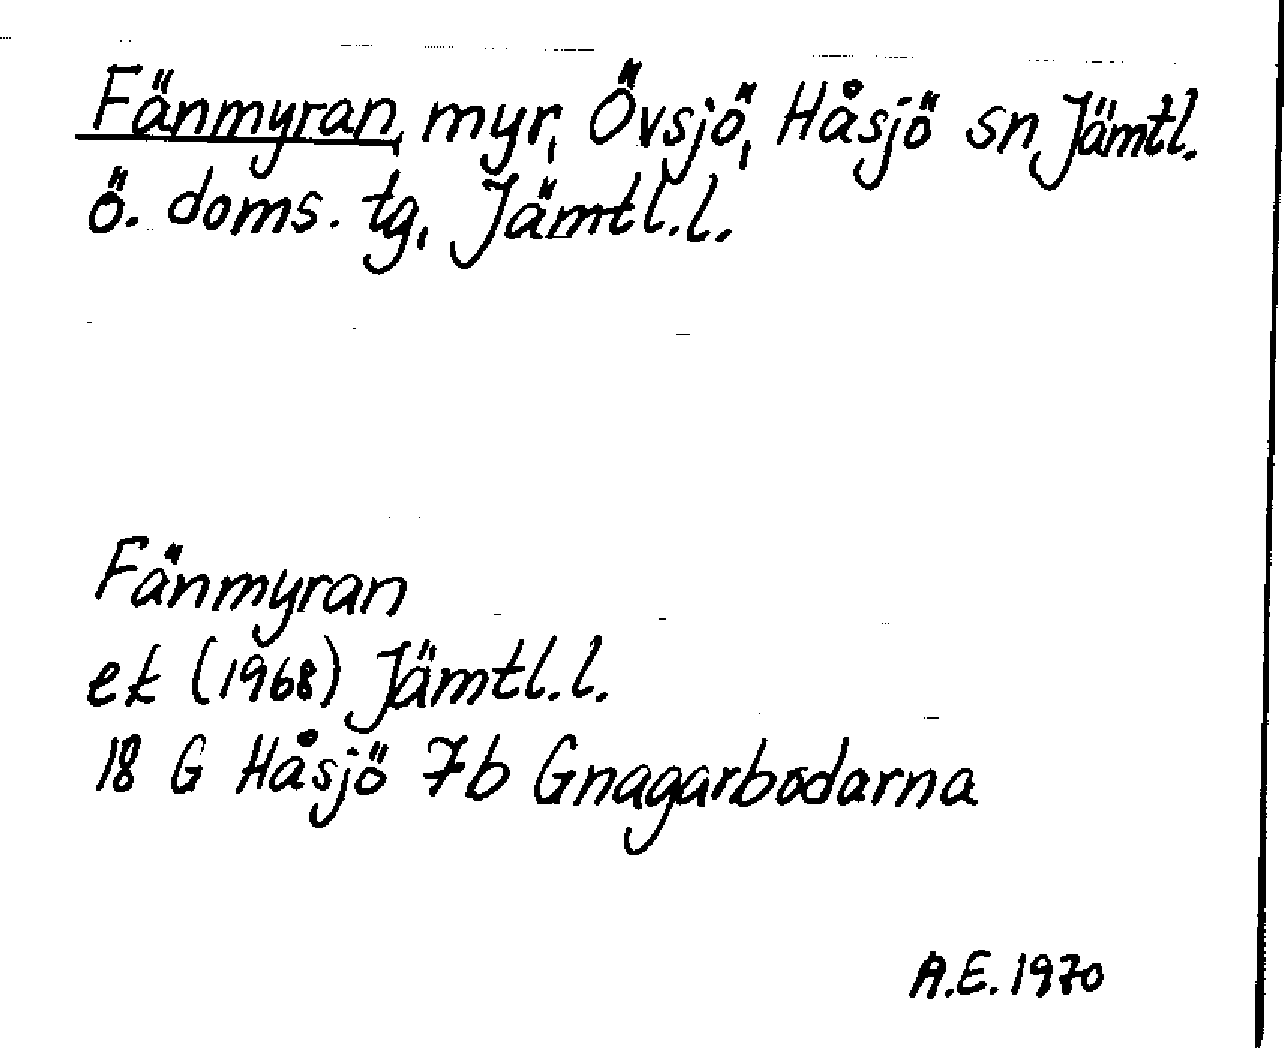 Fänmyran, myr, Övsjö, Håsjö sn, Jämtl.
ö. doms. tg, Jämtl.l.
Fänmyran
ek (1968) Jämtl.l.
18 G Håsjö 7b Gnagarbodarna
A.E. 1970